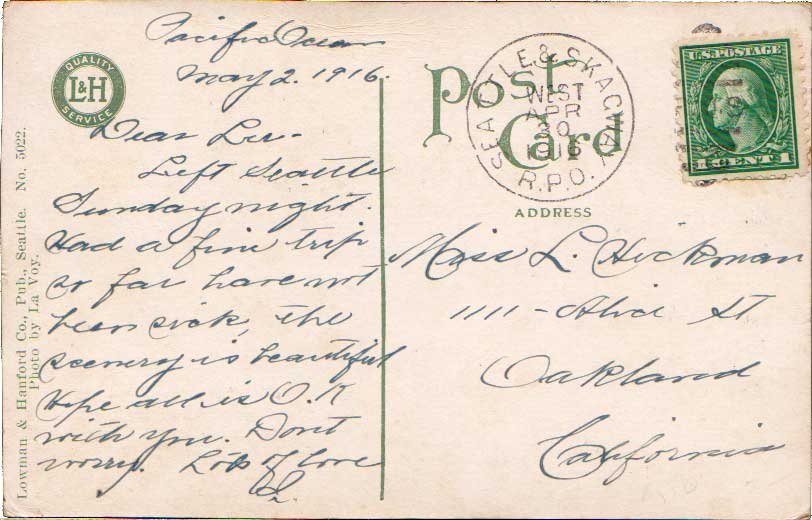 Pacific Ocean
May 2. 1916.
Dear Lu-
Left Seattle
Sunday night.
Had a fine trip
so far have not
been sick, the
scenery is beautiful
Hope all is O.K
with you. Dont
worry. Lots of love
QUALITY
L&H
SERVICE
Lowman & Hanford Co., Pub., Seattle. No. 5022.
Photo by La Voy.
Post Card
SEATTLE & SKAGWAY
WEST
APR
30
1916
R.P.O.
U.S. POSTAGE
1 CENT 1
ADDRESS
Miss L. Hickman
1111 - Alice St
Oakland
California